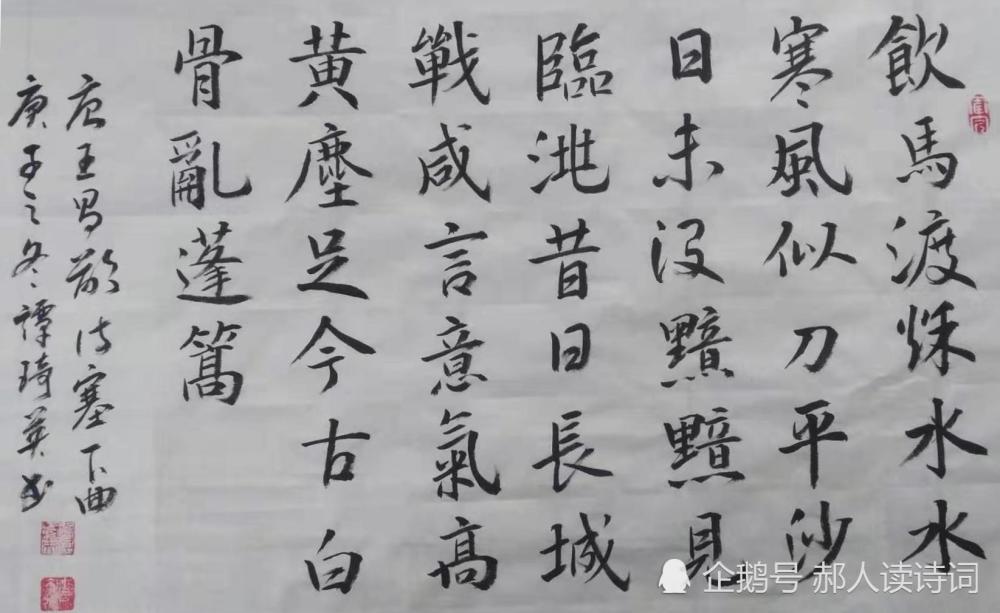 飲馬渡秌水水
寒風似刀平沙
日未沒黯黯見
臨洮昔日長城
戰咸言意氣高
黄塵足今古白
骨亂蓬篙
唐王昌龄诗塞下曲
庚子之冬譚琦英书
企鹅号 郝人读诗词